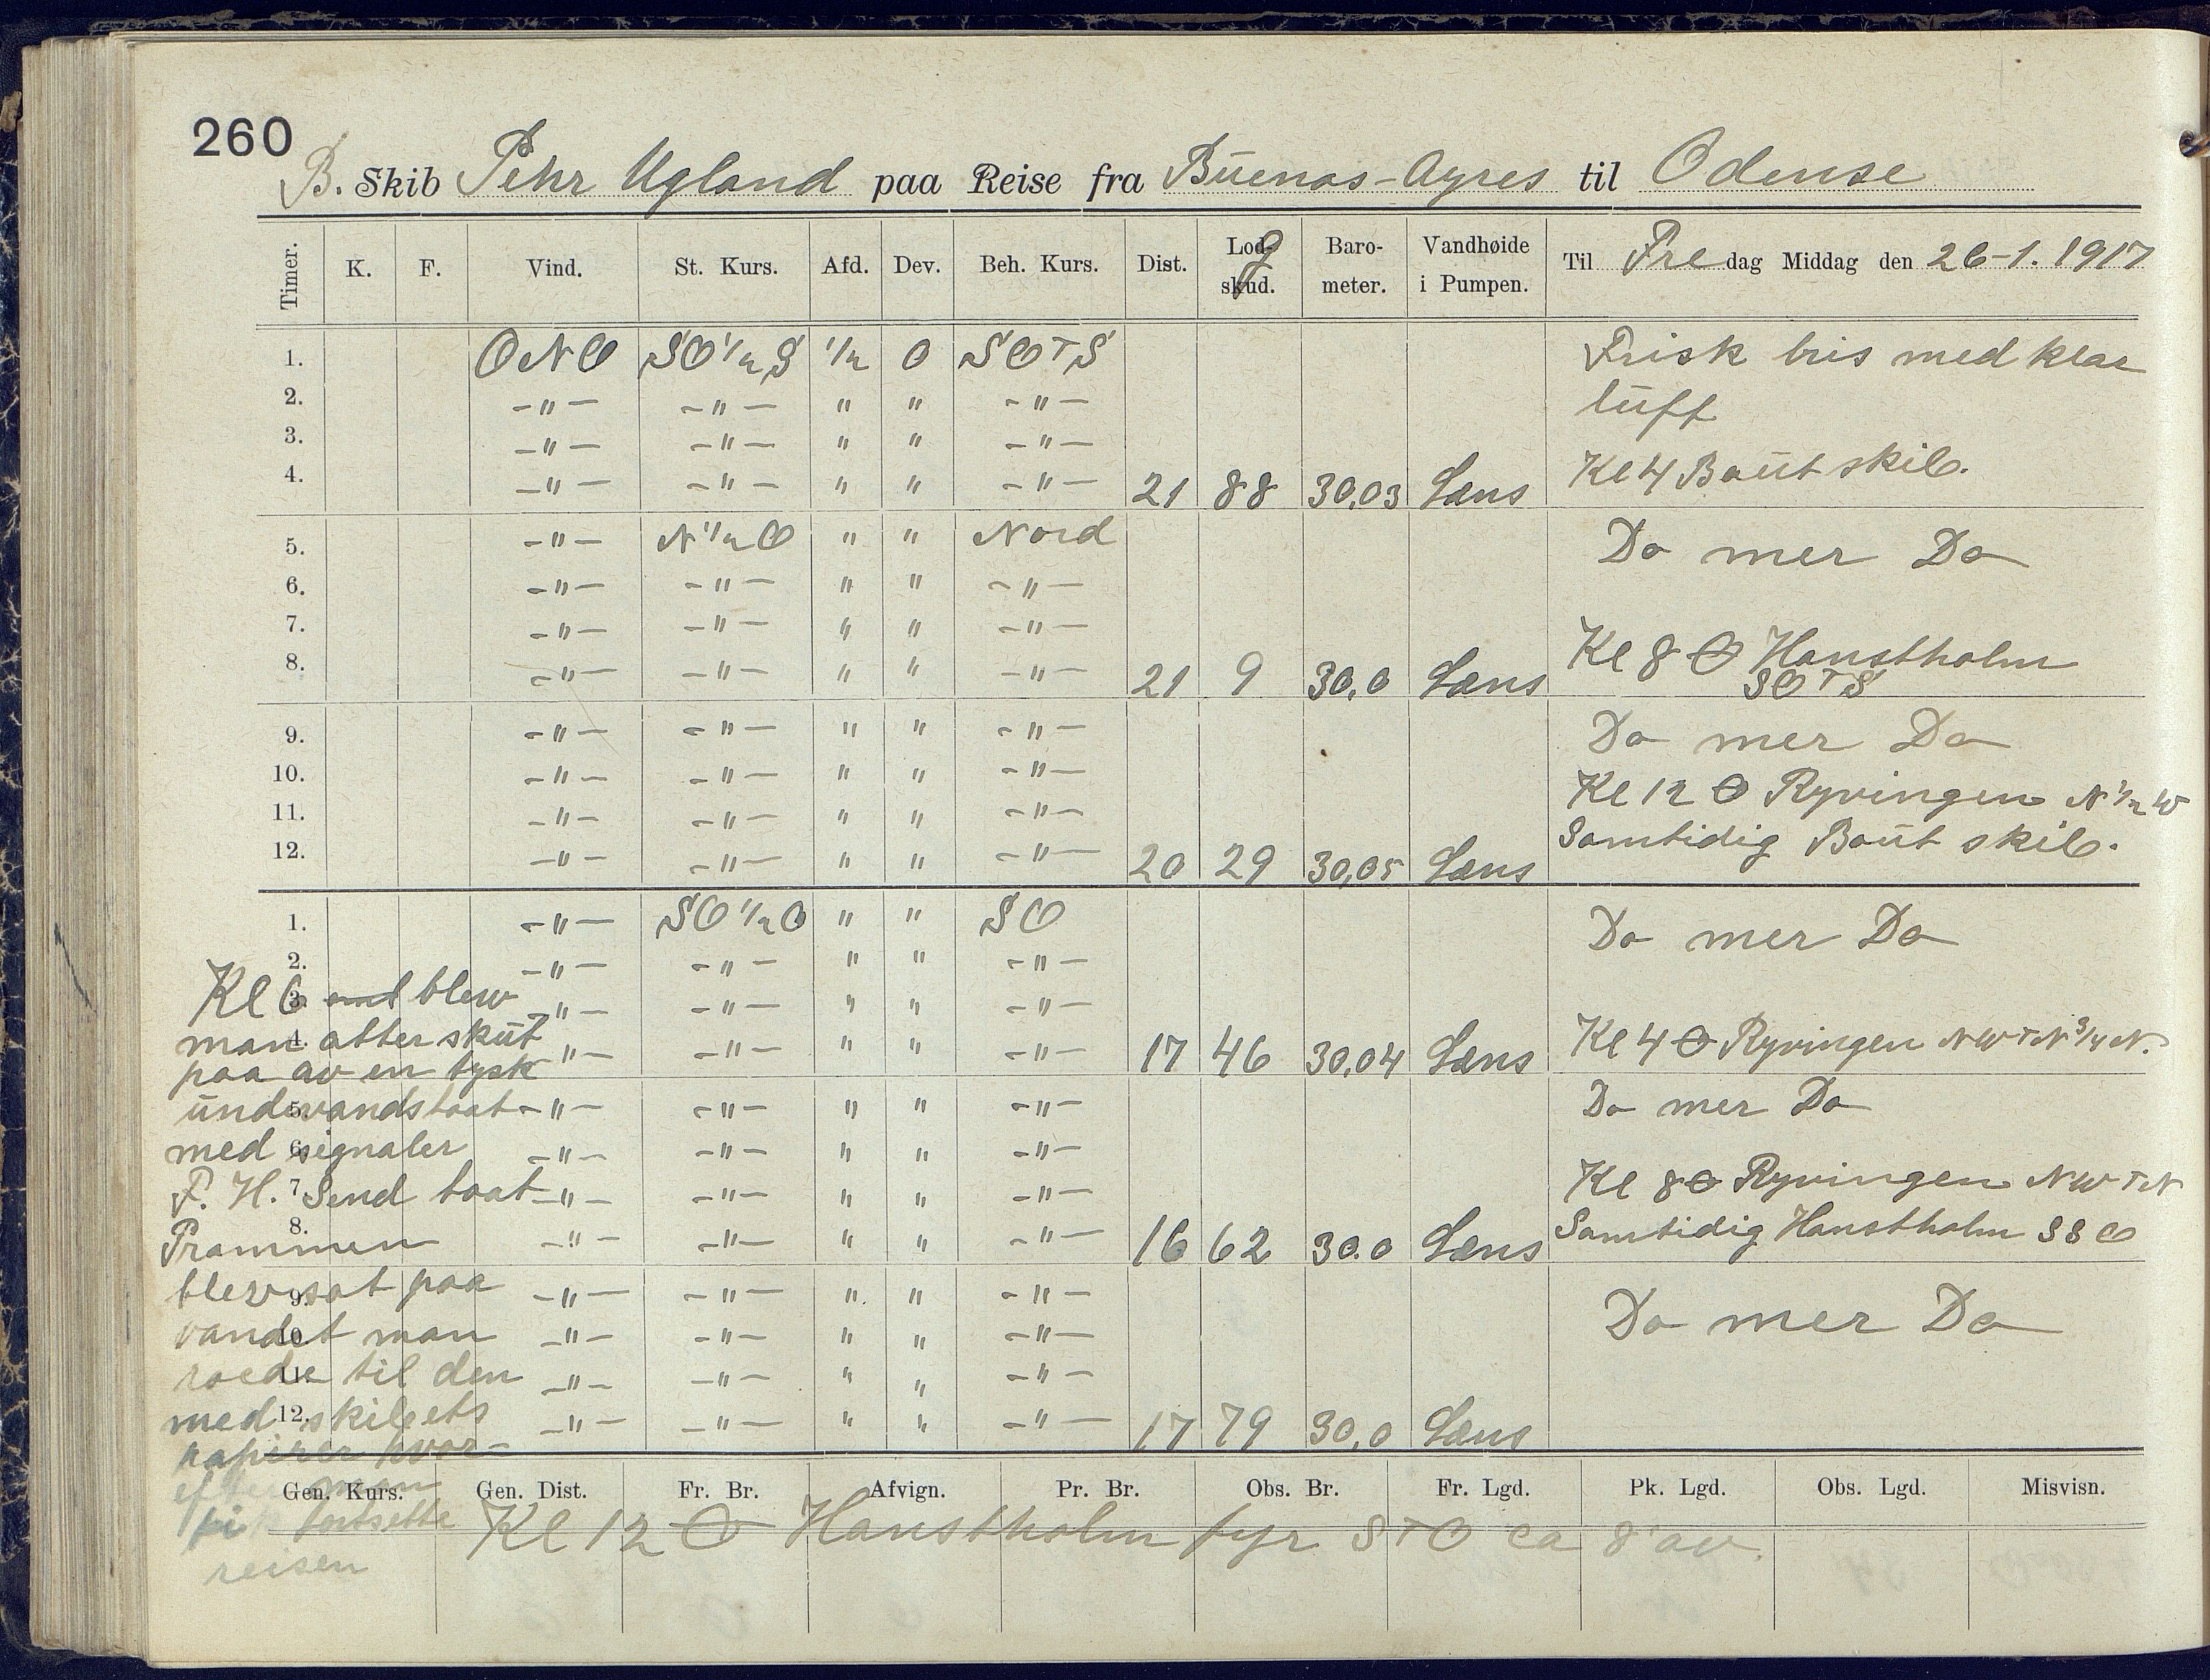 260
B. Skib Pehr Ugland paa Reise fra Buenos-Ayres til Odense
Timer. K. F. Vind. St. Kurs. Afd. Dev. Beh. Kurs. Dist. Lod-skud. Baro-meter. Vandhøide i Pumpen. Til Fredag Middag den 26-1. 1917
1. ONO SO 1/2 S 1/2 0 SOTS Frisk bris med klar
2. -"- -"- " " -"- luft
3. -"- -"- " " -"-
4. -"- -"- " " -"- 21 88 30,03 Læns Kl 4 Baut skib.
5. -"- N 1/2 O " " Nord Do mer Do
6. -"- -"- " " -"-
7. -"- -"- " " -"-
8. -"- -"- " " -"- 21 9 30,0 Læns Kl 8 Hanstholm
SOTS
9. -"- -"- " " -"- Do mer Do
10. -"- -"- " " -"- Kl 12 Ryvingen N 1/2 W
11. -"- -"- " " -"- Samtidig Baut skib.
12. -"- -"- " " -"- 20 29 30,05 Læns
1. -"- SO 1/2 O " " SO Do mer Do
2. -"- -"- " " -"-
3. -"- -"- " " -"-
4. -"- -"- " " -"- 17 46 30,04 Læns Kl 4 Ryvingen NWTN 3/4 N.
5. -"- -"- " " -"- Do mer Do
6. -"- -"- " " -"-
7. -"- -"- " " -"- Kl 8 Ryvingen NWTN
8. -"- -"- " " -"- 16 62 30.0 Læns Samtidig Hanstholm SSO
9. -"- -"- " " -"- Do mer Do
10. -"- -"- " " -"-
11. -"- -"- " " -"-
12. -"- -"- " " -"- 17 79 30,0 Læns
Kl 6 blew
man atter skut
paa av en tysk
undervandsbaat
med signaler
F. H. Send baat
Prammen
blev sat paa
vandet man
roede til den
med skibets
papirer hvor-
efter man
fik fortsette
reisen
Gen. Kurs. Gen. Dist. Fr. Br. Afvign. Pr. Br. Obs. Br. Fr. Lgd. Pk. Lgd. Obs. Lgd. Misvisn.
Kl 12 Hanstholm fyr STO ca 8' av.